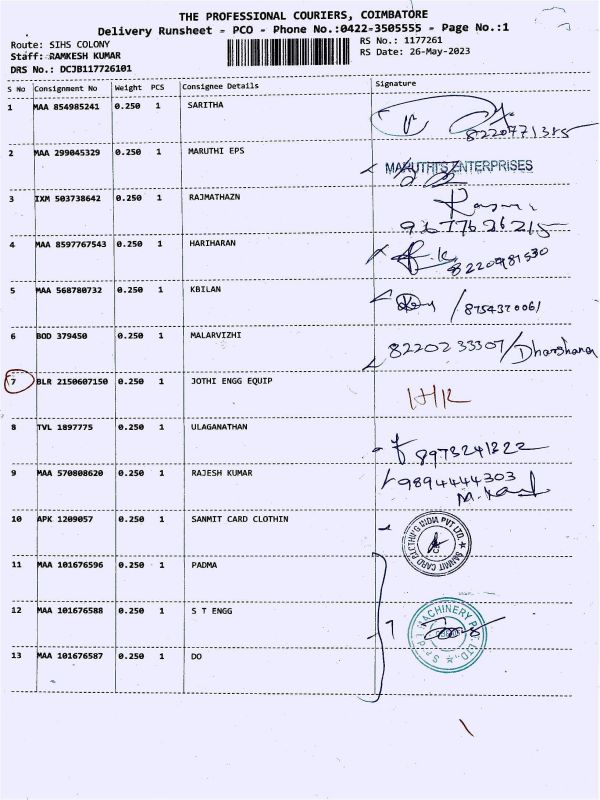 THE PROFESSIONAL COURIERS, COIMBATORE
Delivery Runsheet - PCO - Phone No.:0422-3505555 - Page No.:1
Route: SIHS COLONY RS No.: 1177261
Staff: RAMKESH KUMAR RS Date: 26-May-2023
DRS No.: DCJB117726101
S No Consignment No Weight PCS Consignee Details Signature
1 MAA 854985241 0.250 1 SARITHA
8220771385
2 MAA 299045329 0.250 1 MARUTHI EPS MARUTHI'S ENTERPRISES
3 IXM 503738642 0.250 1 RAJMATHAZN
9677626215
4 MAA 8597767543 0.250 1 HARIHARAN
8220981530
5 MAA 568780732 0.250 1 KBILAN /8754370061
6 BOD 379450 0.250 1 MALARVIZHI 8220233307/Dharshana
7 BLR 2150607150 0.250 1 JOTHI ENGG EQUIP
8 TVL 1897775 0.250 1 ULAGANATHAN
8973241322
9 MAA 570808620 0.250 1 RAJESH KUMAR 9894444303
10 APK 1209057 0.250 1 SANMIT CARD CLOTHIN SANMIT CARD CLOTHING INDIA PVT LTD.
11 MAA 101676596 0.250 1 PADMA
12 MAA 101676588 0.250 1 S T ENGG MACHINERY PVT. LTD.
13 MAA 101676587 0.250 1 DO